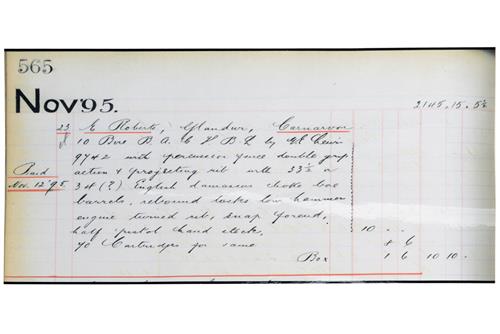 565
Nov '95. 2145. 15. 5½
23 E Roberts, Glandwr, Carnarvon
10 Bore B. A. G. H B. L by G E Lewis
9742 with percussion fence double grip
Paid action & projecting rib with 33½ or
Nov. 12 '95 34 (?) English damascus choke bore
barrels, rebound locks low hammers
engine turned rib, snap forend,
half pistol hand stock. 10 - -
70 Cartridges for same 4 6
Box 1 6 10 10 -